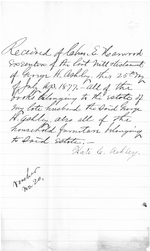 Received of Chas. E. Hammond
Executor of the last Will & testament
of George H. Ashby, this 25th day
of July A.D. 1877. all of the
goods belonging to the estate of
my late husband the said George
H. Ashby, also all of the
household furniture belonging
to said estate.
Kate C. Ashby.
Voucher
No. 20.